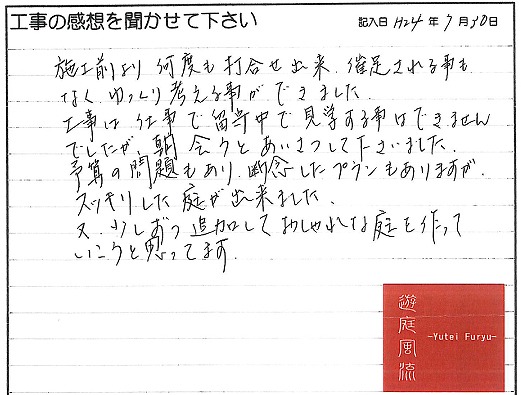 工事の感想を聞かせて下さい
記入日 H24年7月30日
施工前より 何度も打合せ出来、催促される事も
なく ゆっくり考える事ができました
工事は仕事で留守中で見学する事はできません
でしたが、朝 会うとあいさつして下さいました。
予算の問題もあり、断念したプランもありますが、
スッキリした庭が出来ました。
又、少しずつ追加しておしゃれな庭を作って
いこうと思ってます。
遊庭風流
-Yutei Furyu-